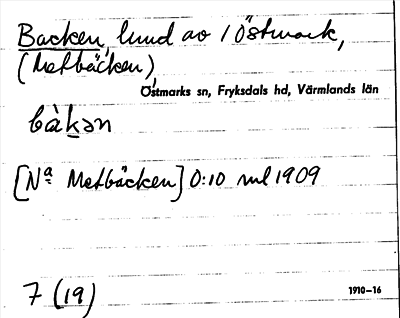 Backen, lund av 1 Östmark,
(Metbäcken)
Östmarks sn, Fryksdals hd, Värmlands län
bàkən
[Nª Metbäcken] 0:10 ml 1909
7 (19)
1910–16